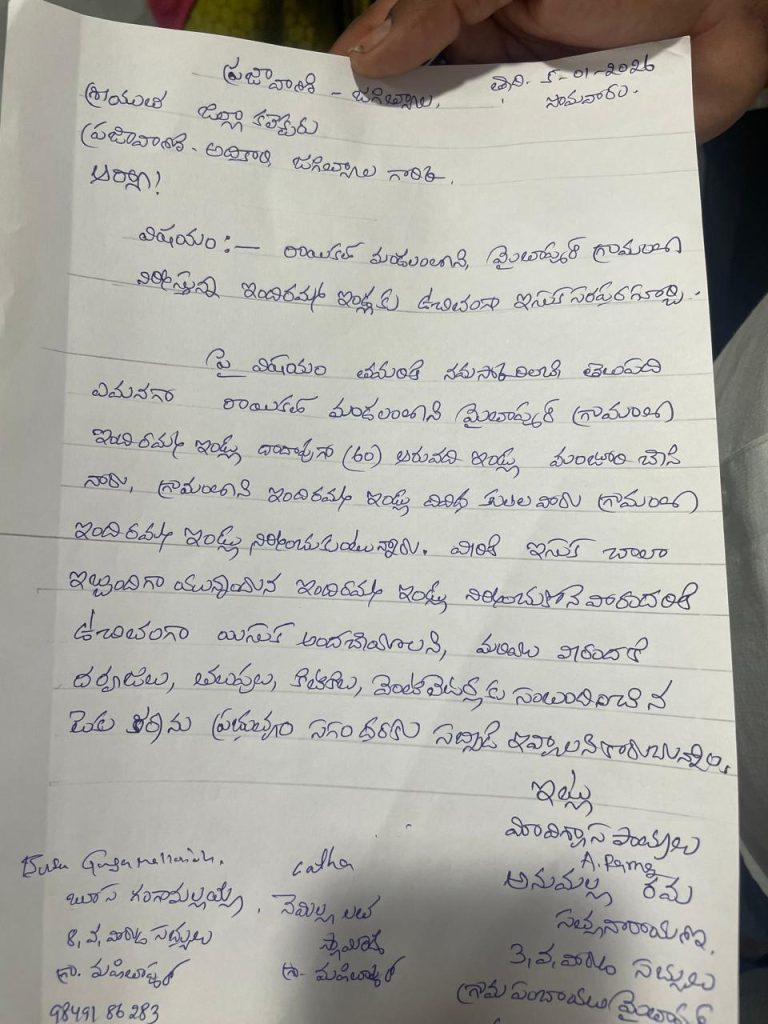 ప్రజావాణి - జగిత్యాల, తాది. 5-01-2026
సోమవారం.
శ్రీయుత జిల్లా కలెక్టరు
ప్రజావాణి - అధికారి, జగిత్యాల గారికి,
ఆర్యా!
విషయం :- రాయికల్ మండలంలోని, మైతాపూర్ గ్రామంలో
నిర్మిస్తున్న ఇందిరమ్మ ఇండ్లకు ఉచితంగా ఇసుక సరఫర గూర్చి.
పై విషయం తమరితో నమస్కరించి తెలుపునది
ఏమనగా రాయికల్ మండలంలోని మైతాపూర్ గ్రామంలో
ఇందిరమ్మ ఇండ్లు దాదాపుగా (60) అరువది ఇండ్లు మంజూరి చేసి
నారు, గ్రామంలోని ఇందిరమ్మ ఇండ్లు వివిధ కులల వారు గ్రామంలో
ఇందిరమ్మ ఇండ్లు నిర్మించుకుంటున్నారు. వీరికి ఇసుక చాలా
ఇబ్బందిగా యున్నయిన ఇందిరమ్మ ఇండ్లు నిర్మించుకొనే వారందరికి
ఉచితంగా యిసుక అందచేయాలని, మరియు వీరందరికి
దర్వాజలు, తలుపులు, కిటికీలు, వెంటిలేటర్లకు సంబంధించిన
ప్రభుత్వం సగం ధరకు సబ్సిడి ఇవ్వాలని కోరుచున్నాం.
ఇట్లు
మా విశ్వాస పాత్రులు
A. Rama
అనుమల్ల రమ
సత్యనారాయణ.
3, వ, వార్డు సభ్యులు
గ్రామ పంచాయతి మైతాపూర్
Gangamallaiah.
బూస గంగామల్లయ్య,
8, వ, వార్డు సభ్యులు
గ్రా. మైతాపూర్
98491 86 283
Latha
నెమిల్ల లత
గ్రా- మైతాపూర్